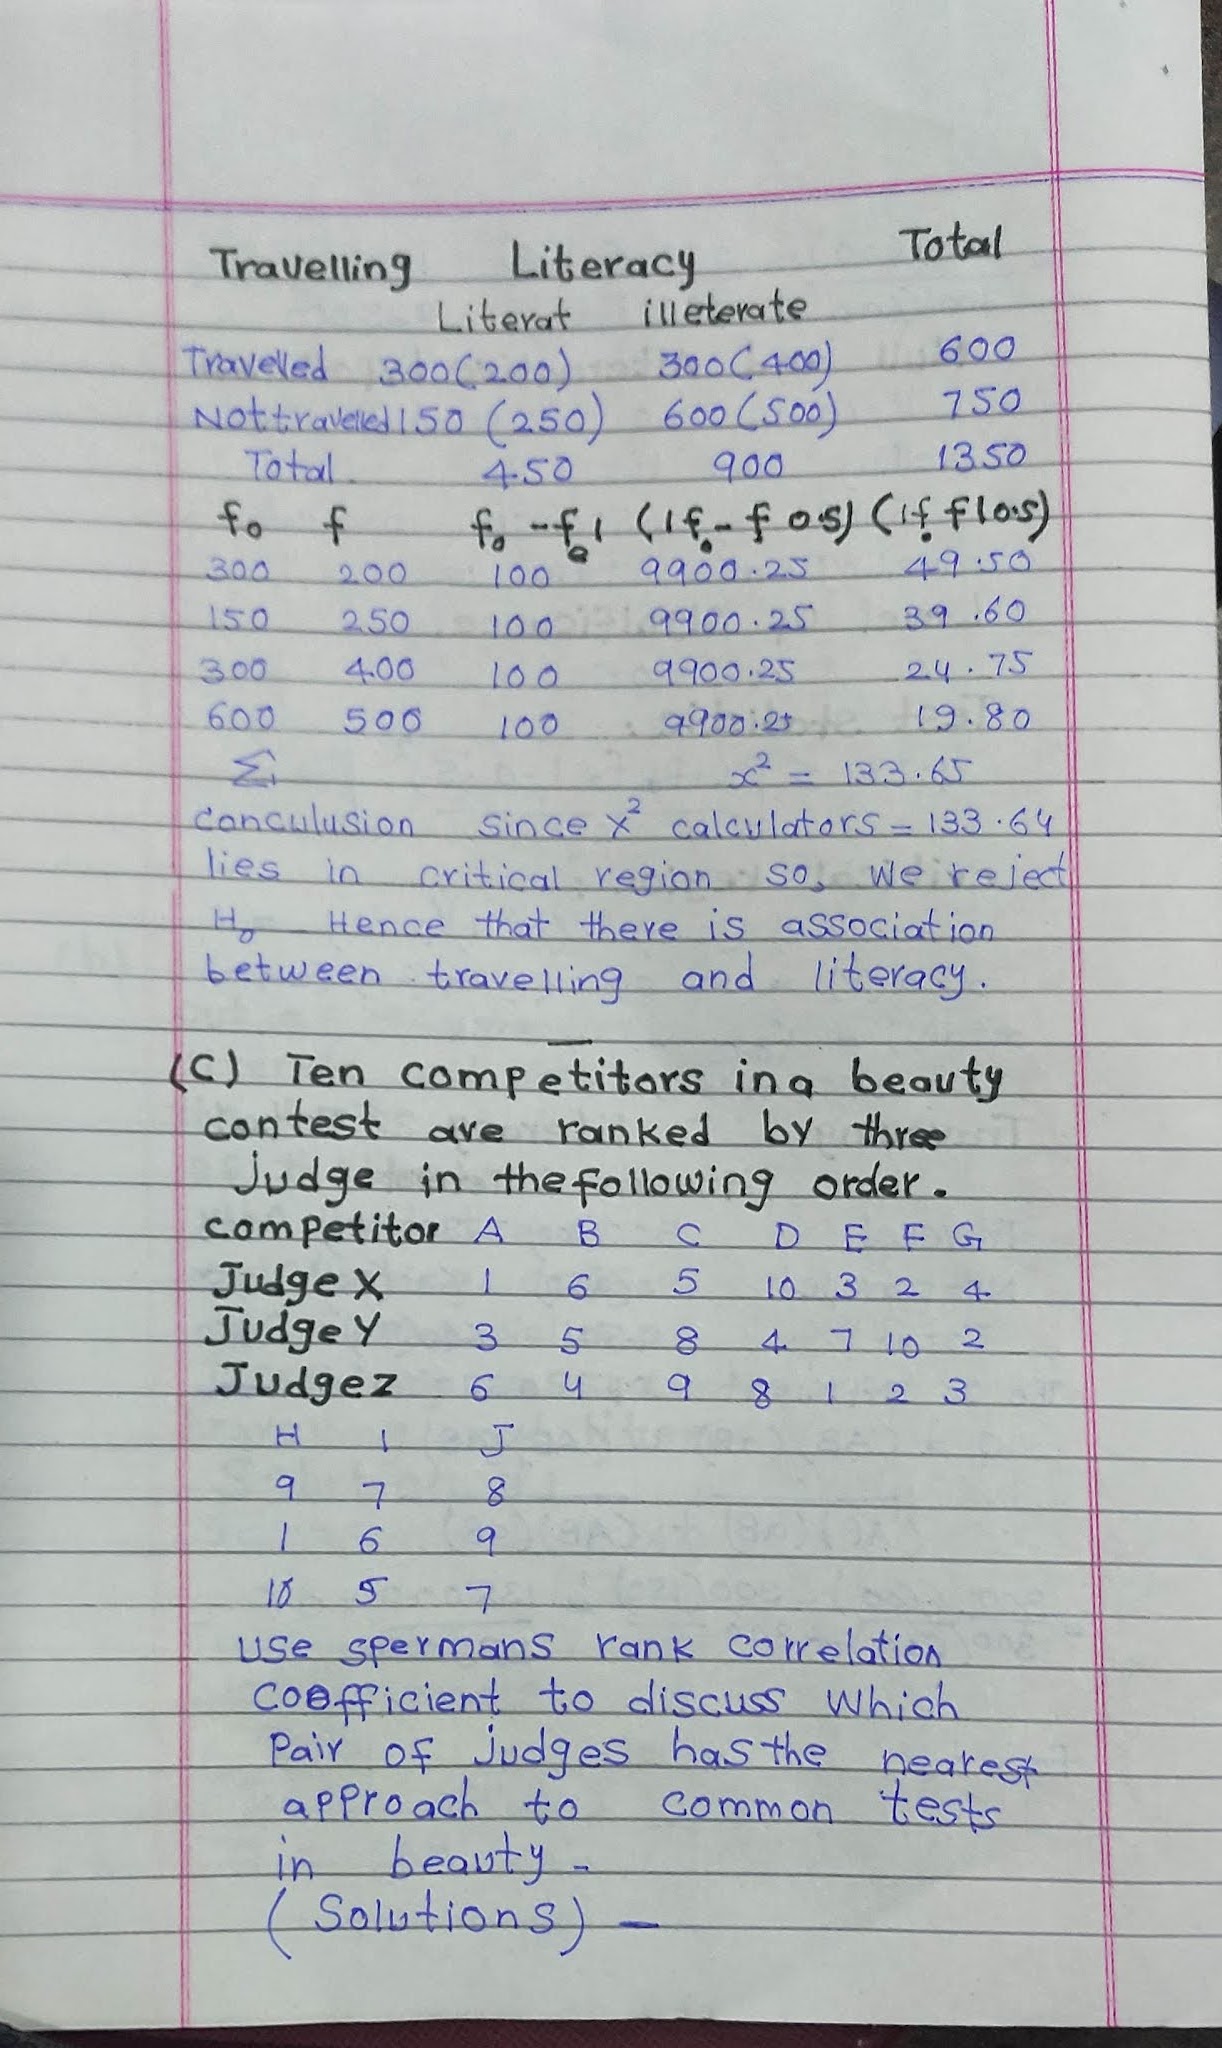 Travelling Literacy Total
Literat illeterate
Travelled 300(200) 300(400) 600
Not travelled 150 (250) 600(500) 750
Total 450 900 1350
fo f fo -fe1 (1fo - f 0.5) (1f f10.5)
300 200 100 9900.25 49.50
150 250 100 9900.25 39.60
300 400 100 9900.25 24.75
600 500 100 9900.25 19.80
Σ x² = 133.65
Conculusion since x² calculators = 133.64
lies in critical region so, we reject
H₀ Hence that there is association
between travelling and literacy.
(C) Ten competitors in a beauty
contest are ranked by three
Judge in the following order.
competitor A B C D E F G
Judge X 1 6 5 10 3 2 4
Judge Y 3 5 8 4 7 10 2
Judge z 6 4 9 8 1 2 3
H I J
9 7 8
1 6 9
10 5 7
use spermans rank correlation
coefficient to discuss which
Pair of judges has the nearest
approach to common tests
in beauty -
(Solutions) -